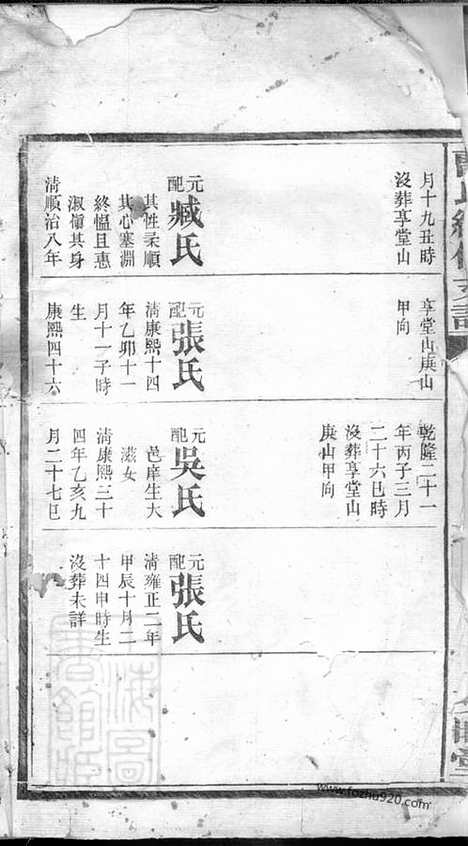 月十九丑時
沒葬享堂山
元配臧氏
其性柔順
其心塞淵
終慍且惠
淑嶺其身
清順治八年
享堂山庚山
甲向
元配張氏
清康熙十四
年乙卯十一
月十一子時
生
康熙四十六
乾隆二十一
年丙子三月
二十六巳時
沒葬享堂山
庚山甲向
元配吳氏
邑庠生大
滋女
清康熙三十
四年乙亥九
月二十七巳
元配張氏
清雍正二年
甲辰十月二
十四申時生
沒葬未詳
www.fozhu920.com